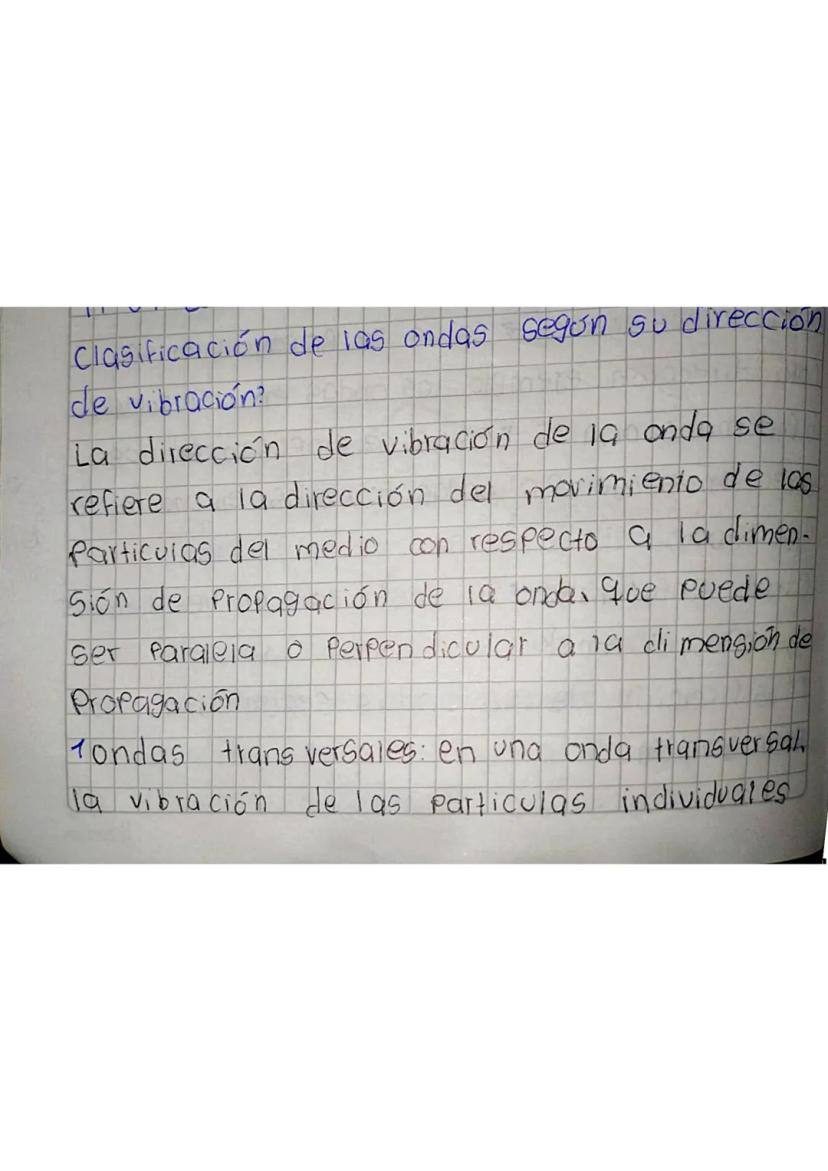 Clasificación de las ondas segun su dirección
de vibración?
La dirección de vibración de la onda se
refiere a la dirección del movimiento de las
Particulas del medio con respecto a la dimen-
sión de Propagación de la onda, que puede
ser Paralela o Perpendicular a la dimensión de
Propagación
1 ondas transversales: en una onda transversal,
la vibración de las particulas individuales